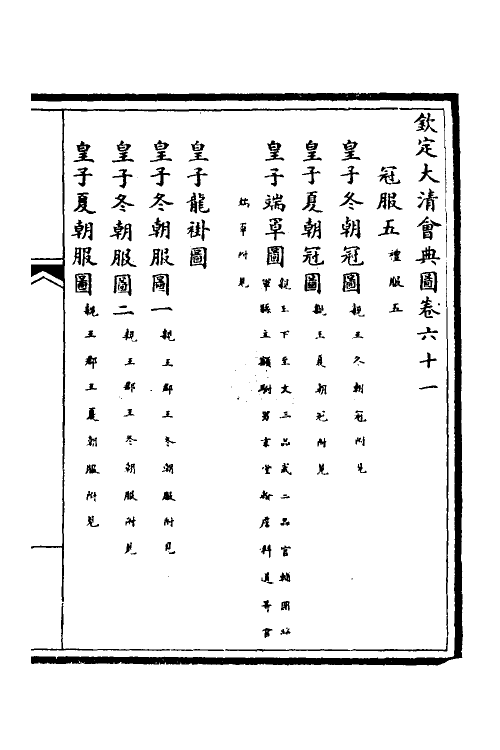 欽定大清會典圖卷六十一
冠服五 禮服五
皇子冬朝冠圖 親王冬朝冠附見
皇子夏朝冠圖 親王夏朝冠附見
皇子端罩圖 親王下至文三品武二品官輔國
軍縣主額駙男京堂翰詹科道等官
端罩附見
皇子龍褂圖
皇子冬朝服圖一 親王郡王冬朝服附見
皇子冬朝服圖二 親王郡王冬朝服附見
皇子夏朝服圖 親王郡王夏朝服附見